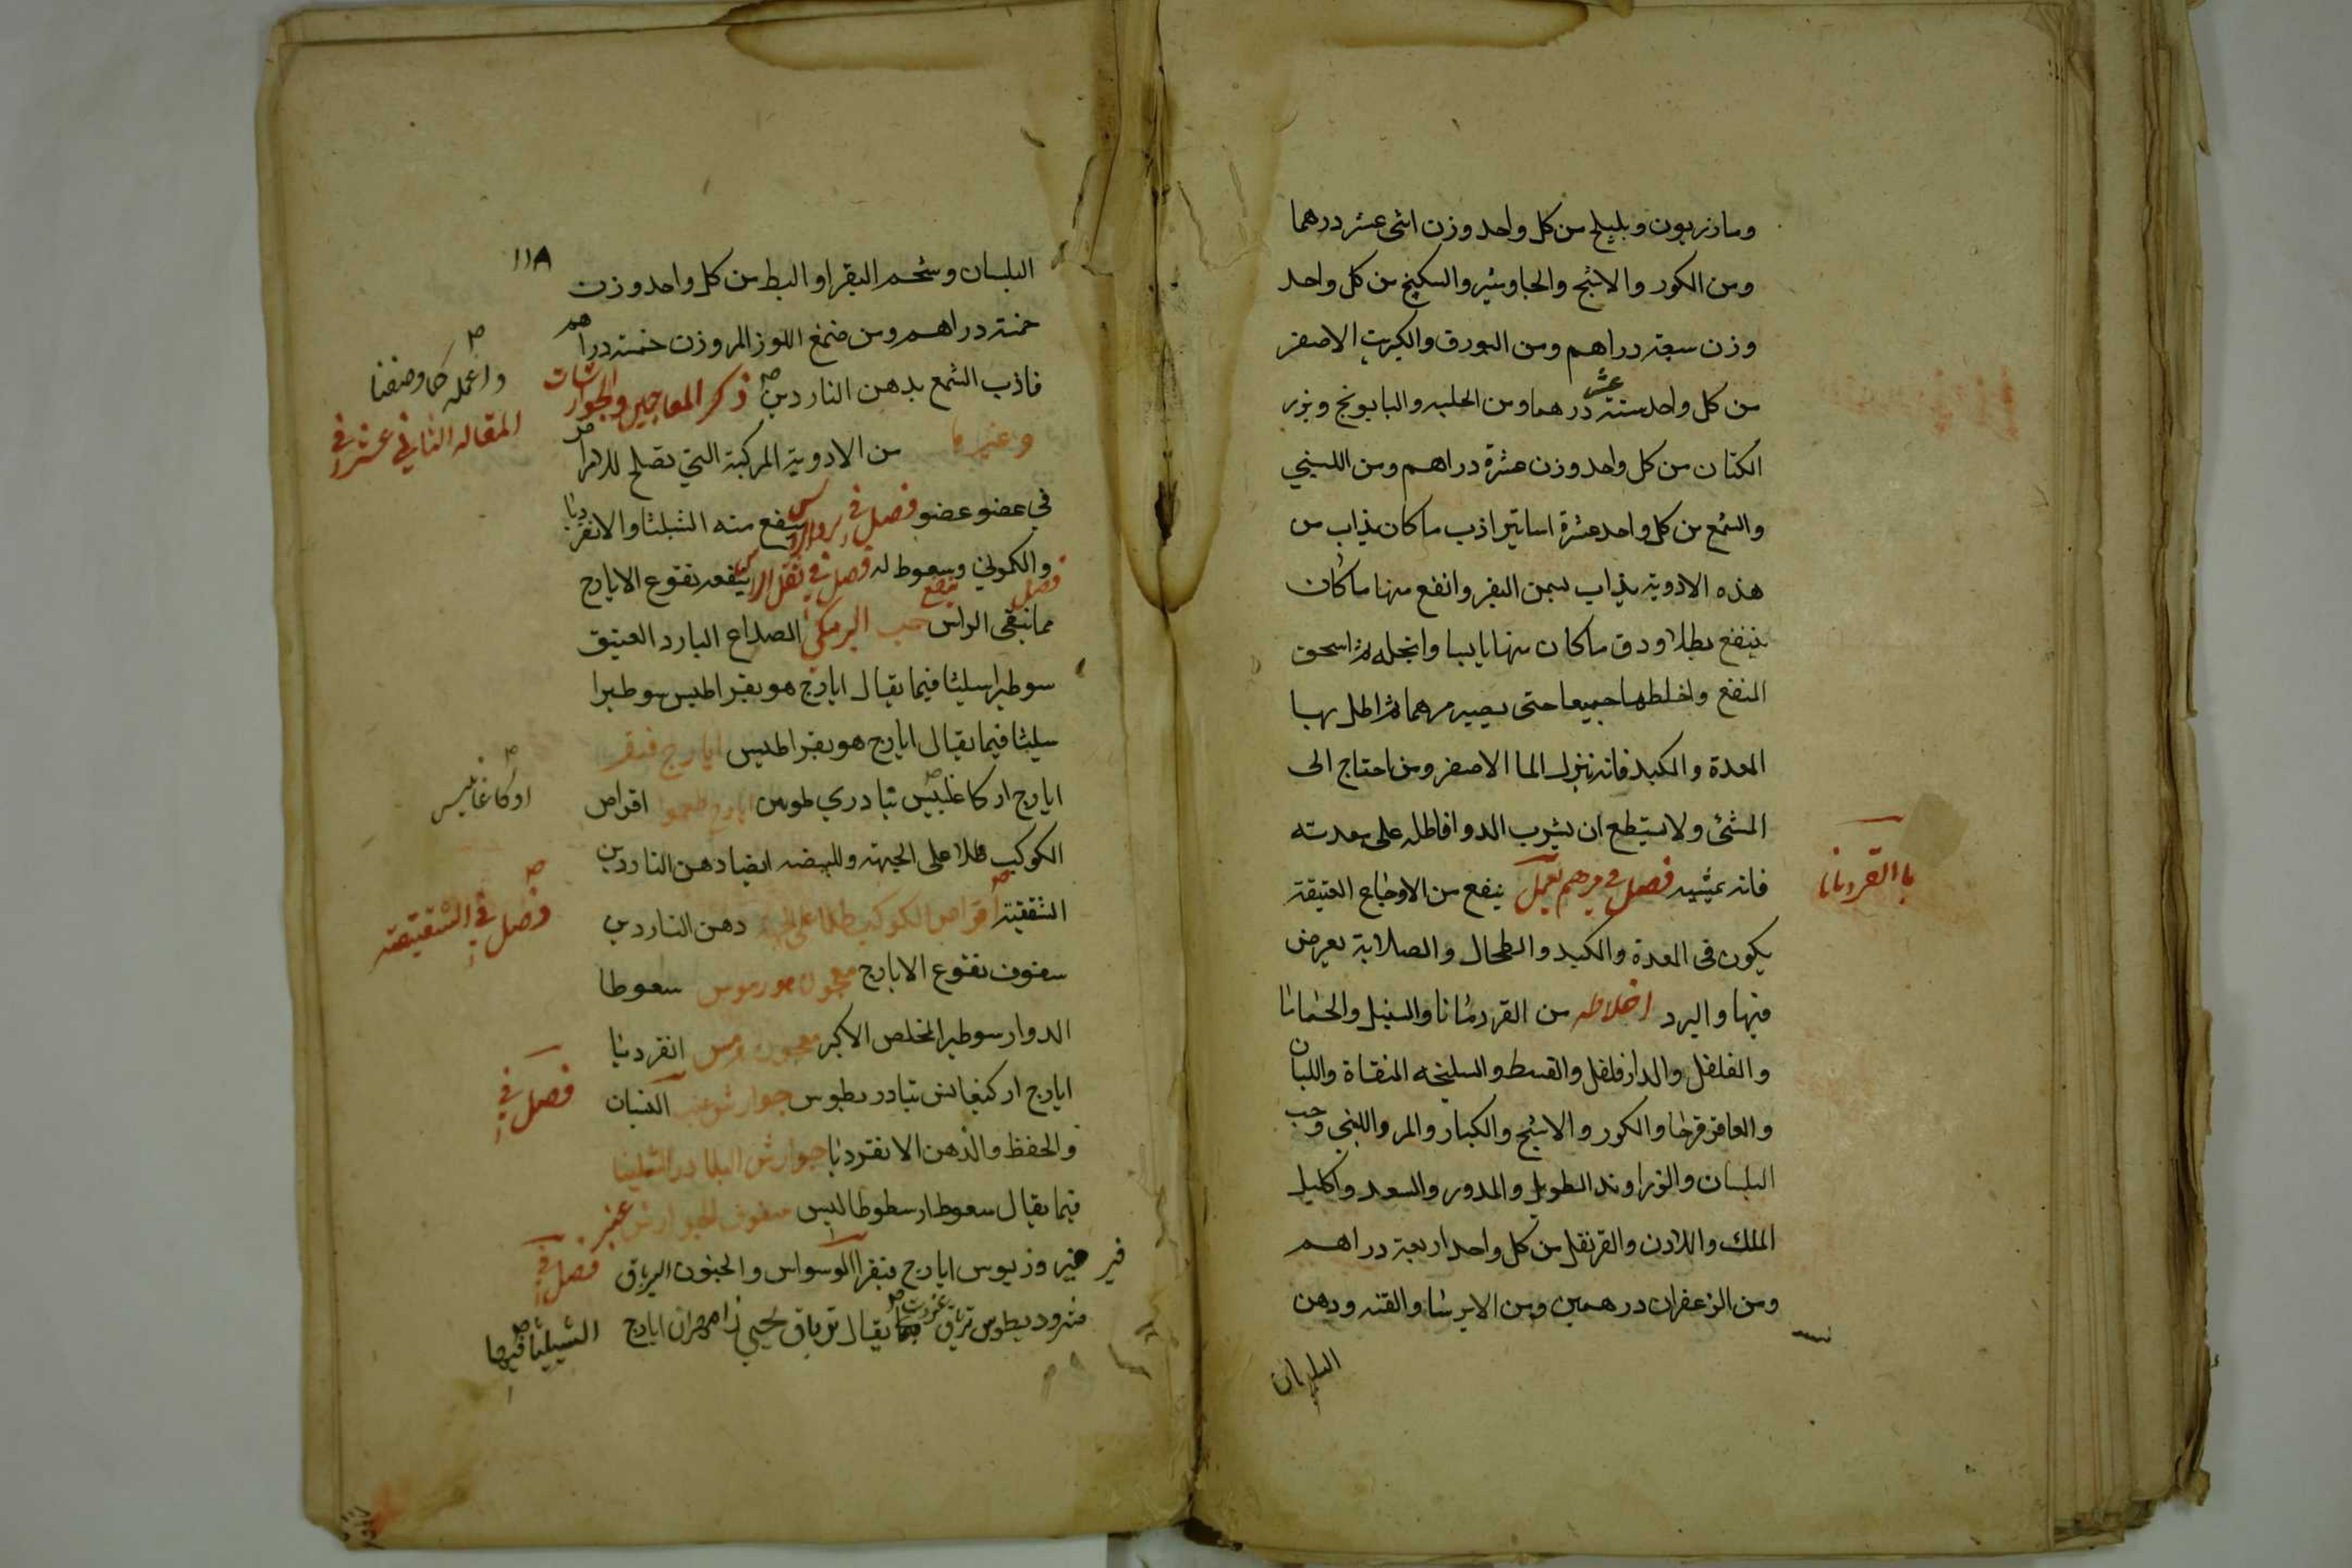 ومازريون وبليلج من كل واحد وزن اثنى عشر درهما
ومن الكور والاشج والجاوشير والسكبينج من كل واحد
وزن سبعة دراهم ومن البورق والكبريت الاصفر
من كل واحد ستة عشر درهما ومن الحلبه والبابونج وبزر
الكتان من كل واحد وزن عشرة دراهم ومن اللبني
والشمع من كل واحد عشرة اساتير اذب ما كان يذاب من
هذه الادوية يذاب بسمن البقر وانقع منها ما كان
ينقع بطلا ودق ما كان منها يابسا وانخله ثم اسحق
المنقع واخلطها جميعا حتى يصير مرهما ثم اطل بها
المعدة والكبد فانه ينزل الما الاصفر ومن احتاج الى
المشئ ولا يستطع ان يشرب الدوا فاطله على معدته
فانه يمشيه فصل في مرهم يعمل ينفع من الاوجاع العتيقة
با القردمانا
يكون فى المعدة والكبد والطحال والصلابة يعرض
فيها والبرد اخلاطه من القردمانا والسنبل والحماما
والفلفل والدارفلفل والقسط والسليخه المنقاة واللبان
والعاقرقرحا والكور والاشج والكبار والمر واللبني وحب
البلسان والزراوند الطويل والمدور والسعد واكليل
الملك واللادن والقرنفل من كل واحد اربعة دراهم
ومن الزعفران درهمين ومن الايرسا والقنه ودهن
البلسان
١١٨
البلسان وشحم البقر او البط من كل واحد وزن
خمسة دراهم ومن صمغ اللوز المر وزن خمسة دراهم
فاذب الشمع بدهن الناردين ذكر المعاجين والجوارشات
واعمله كما وصفنا
المقاله الثاني عشر في
وغيرها من الادوية المركبة التي تصلح للامراض
في عضو عضو فصل في ينفع منه الشيلثا والانقرديا
والكموني ويسعوط له فصل في ثقل الراس ينفعه نقوع الايارج
مما ينقى الراس حب البرمكي فصل ينفع الصداع البارد العتيق
سوطيرا سليثا فيما يقال ايارج هو بقراطيس سوطيرا
سليثا فيما يقال ايارج هو بقراطيس ايارج فيقرا
ايارج اركاغليس تيادري طوس اقراص
اركاغانيس
الكوكب طلا على الجبهة وللبيضه ايضا دهن الناردين
فصل في الشقيقه
الشقيقة اقراص الكوكب طلا على الجبهة دهن الناردين
سفوف نقوع الايارج معجون هورموس سعوطا
الدوار سوطيرا المخلص الاكبر معجون هرمس انقرديا
فصل في
ايارج اركيغانس تيادريطوس جوارشن النسيان
والحفظ والذهن الانقرديا جوارشن البلادر اشليثا
فيما يقال سعوط ارسطوطاليس سفوف الجوارشن عنبر
فيروزيوس ايارج فيقرا الوسواس والجنون الترياق فصل في
مثروديطوس ترياق عزرة بما يقال ترياق يحيي ايارج
الشيليثا فيها